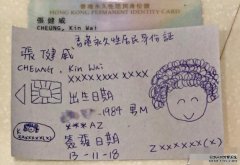 香港永久性居民身份證
HONG KONG PERMANENT IDENTITY CARD
張健威
CHEUNG, Kin Wai
香港永久性居民身份証
張健威
CHEUNG, Kin Wai
xxxx xxxx xxxx
出生日期
-1984 男M
***AZ
簽發日期
13-11-18
Zxxxxxx(x)